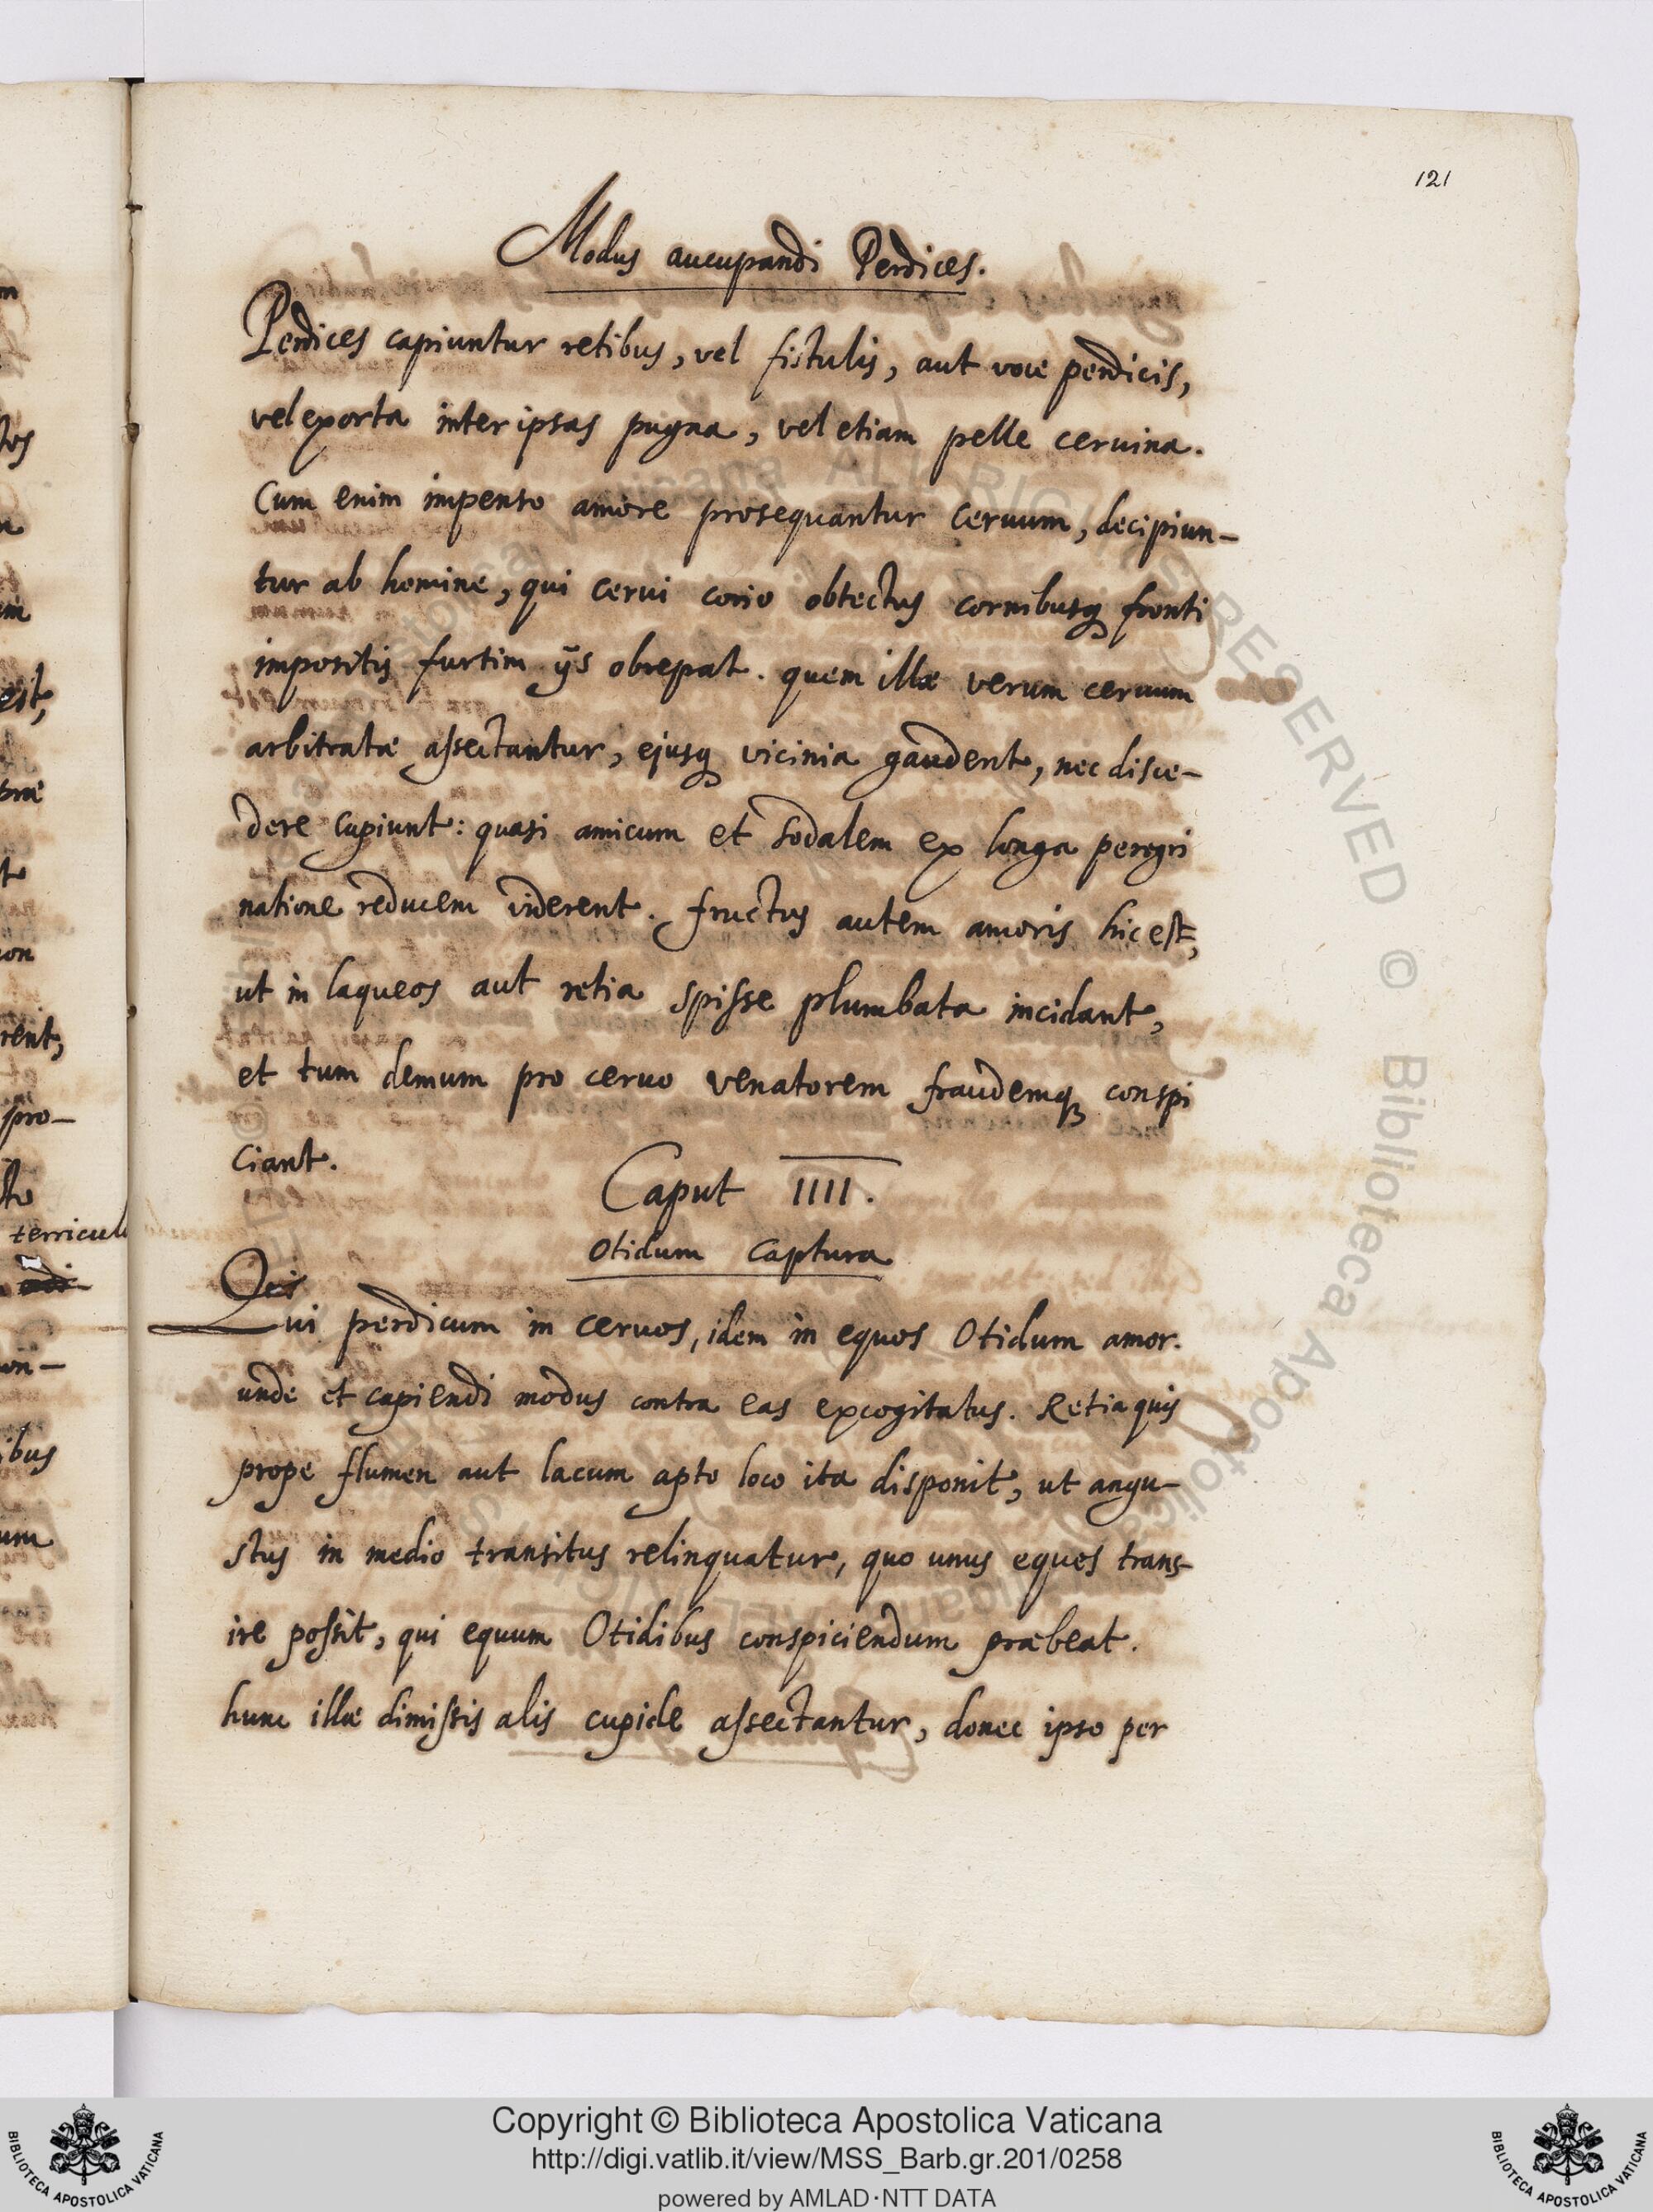 121
Modus aucupandi Perdices.
Perdices capiuntur retibus, vel fistulis, aut voce perdicis,
vel exorta inter ipsas pugna, vel etiam pelle ceruina.
Cum enim impenso amore prosequantur ceruum, decipiun-
tur ab homine, qui cerui corio obtectus cornibusq; fronti
impositis furtim ijs obrepat. quem illæ verum ceruum
arbitratæ assectantur, ejusq; vicinia gaudent, nec disce-
dere cupiunt: quasi amicum et sodalem ex longa peregri
natione reducem viderent. fructus autem amoris hic est,
ut in laqueos aut retia spisse plumbata incidant,
et tum demum pro ceruo venatorem fraudemq; conspi
ciant.
Caput IIII.
Otidum captura
Qui perdicum in ceruos, idem in equos Otidum amor.
unde et capiendi modus contra eas excogitatus. Retia quis
prope flumen aut lacum apto loco ita disponit, ut angu-
stus in medio transitus relinquatur, quo unus eques trans-
ire possit, qui equum Otidibus conspiciendum præbeat.
hunc illæ dimissis alis cupide assectantur, donec ipso per
rent,
pro-
terricul
ibus
Copyright © Biblioteca Apostolica Vaticana
http://digi.vatlib.it/view/MSS_Barb.gr.201/0258
powered by AMLAD·NTT DATA
BIBLIOTECA APOSTOLICA VATICANA
BIBLIOTECA APOSTOLICA VATICANA